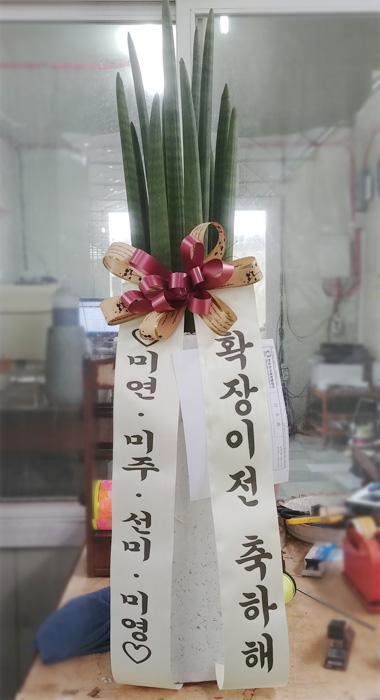 ♡미연·미주·선미·미영♡
확장이전 축하해